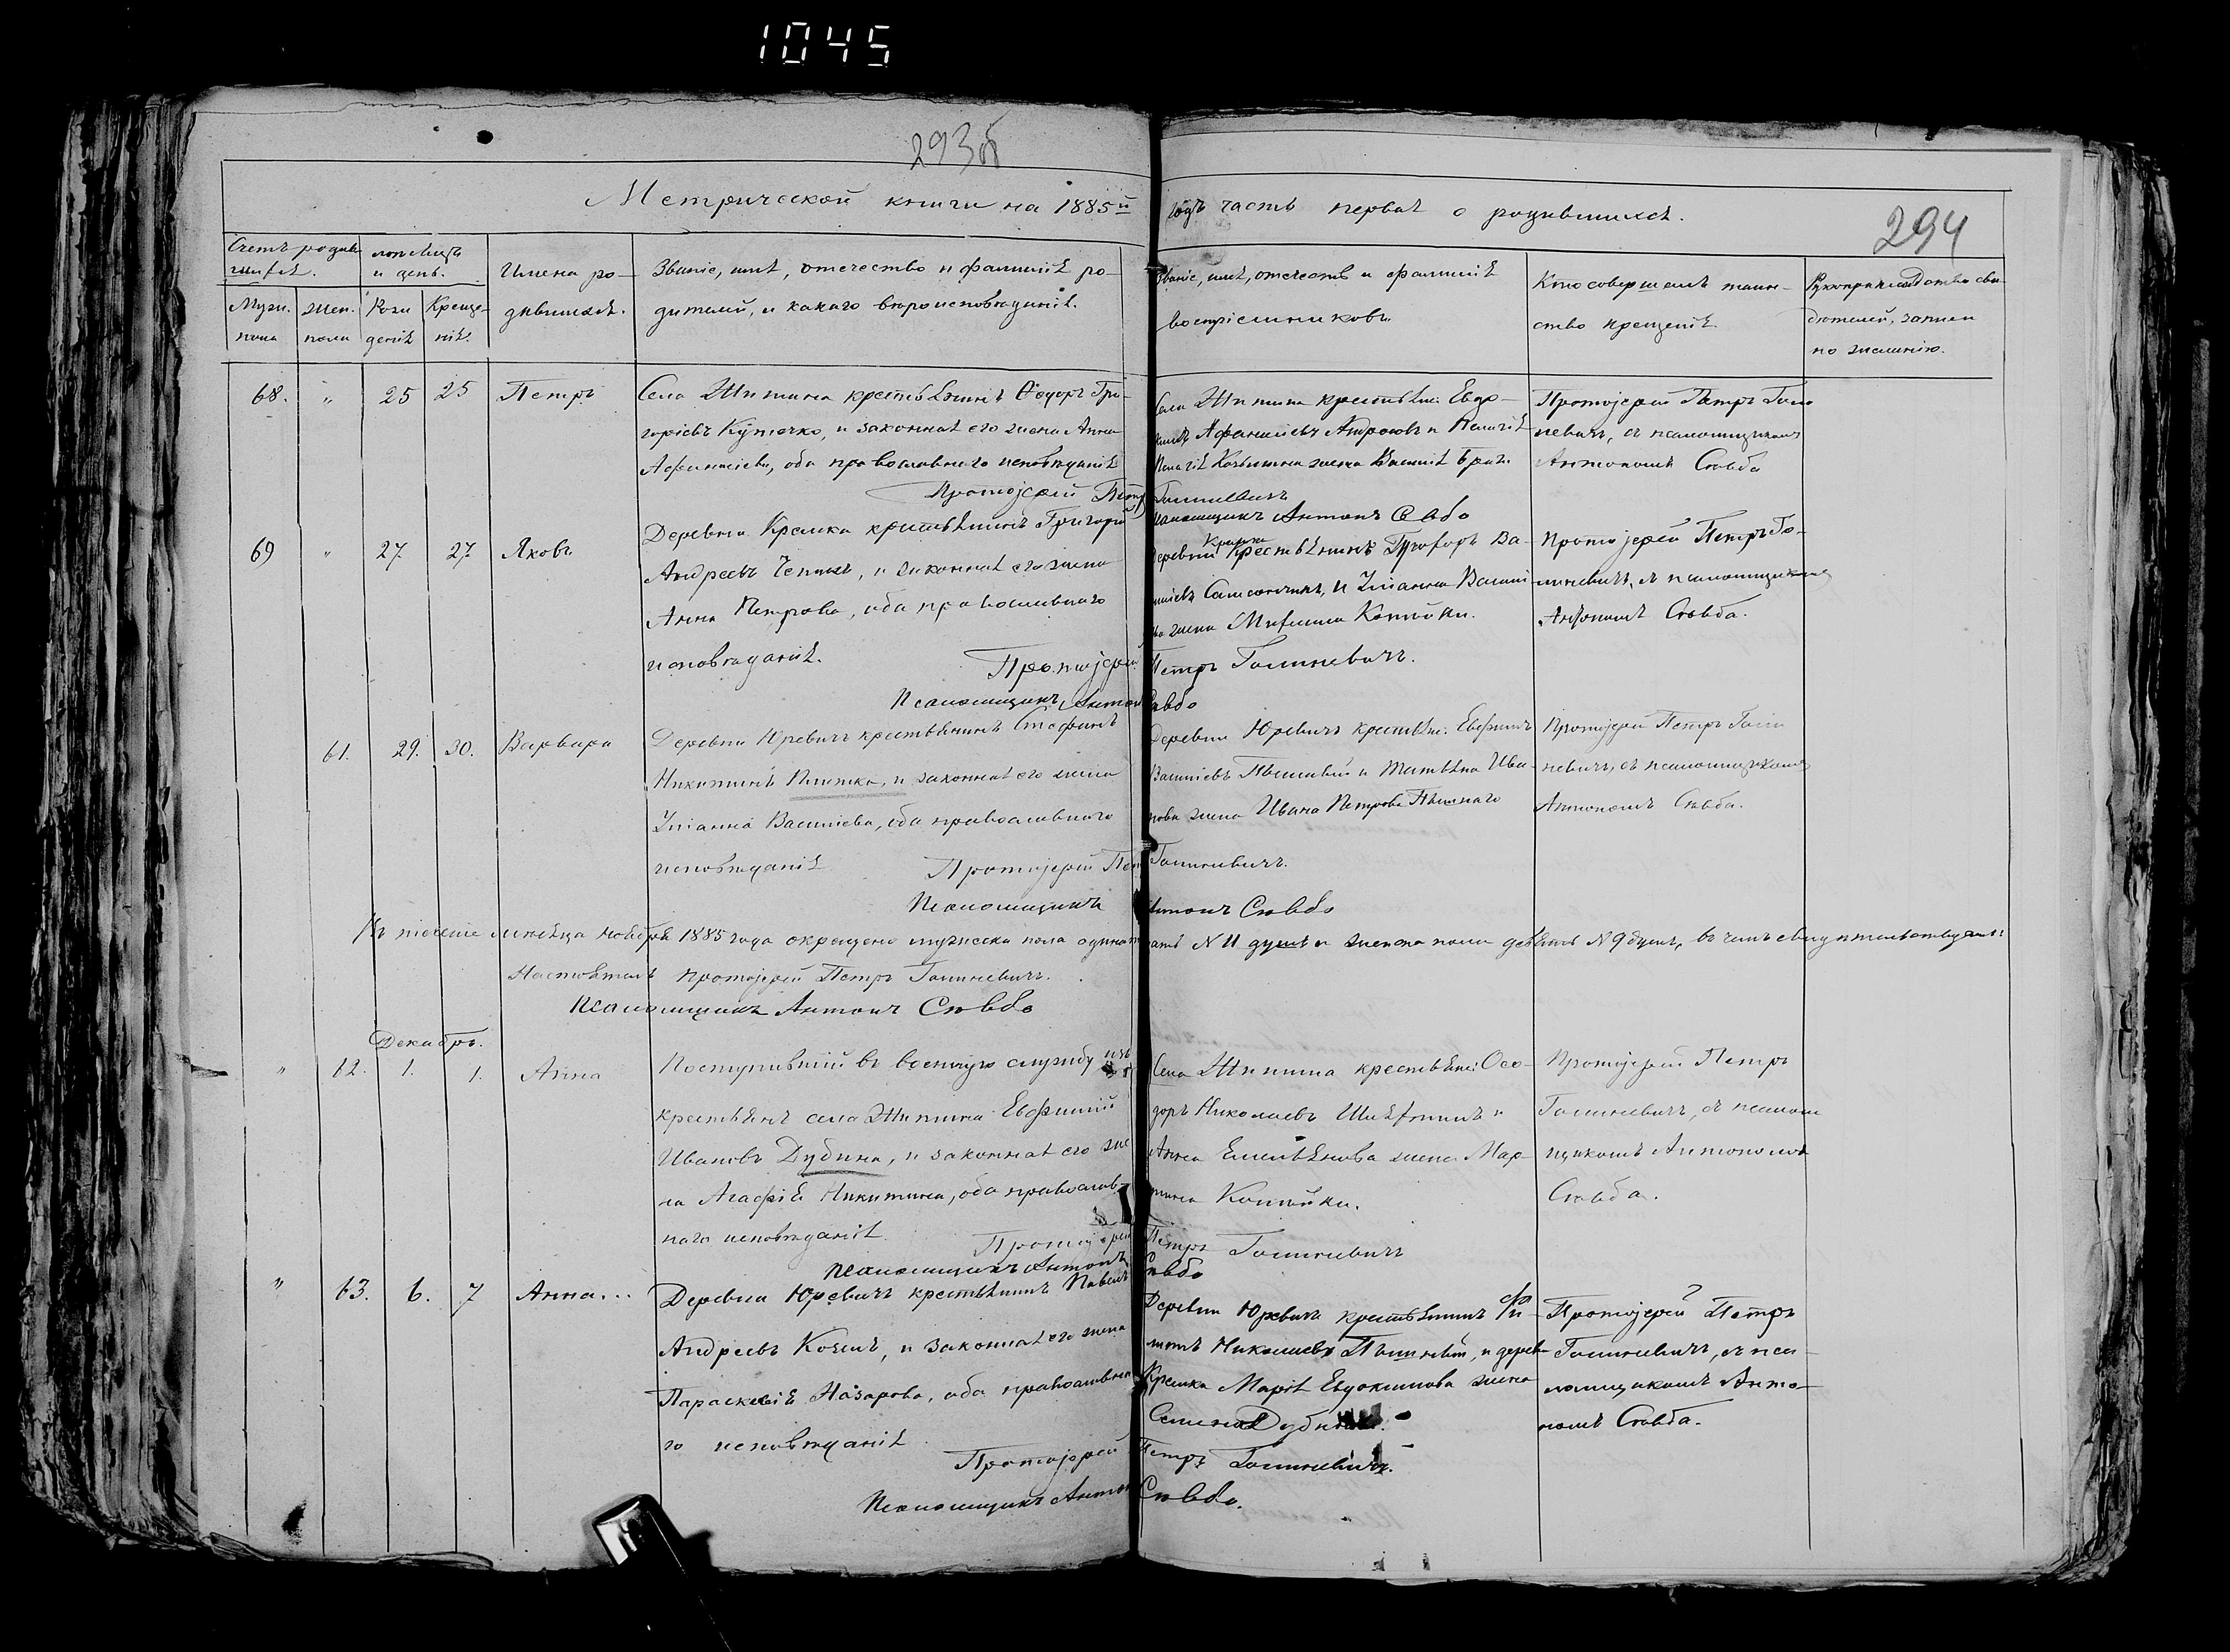 1045
293об
294
Метрической книги на 1885й годъ часть первая о родившихся.
Счетъ родив-
шихся.
Мѣсяцъ
и день.
Имена ро-
дившихся.
Званіе, имя, отечество и фамилія ро-
дителей, и какаго вѣроисповѣданія.
Званіе, имя, отечество и фамилія
воспріемниковъ.
Кто совершалъ таин-
ство крещенія.
Рукоприкладство сви-
дѣтелей, записи
по желанію.
Муж.
пола
жен.
пола
Рож
денія
Креще-
нія.
68. " 25 25 Петръ
Села Житина крестьянинъ Ѳеодоръ Гри-
горіевъ , и законная его жена Анна
Афанасіева, оба православнаго исповѣданія
Села Житина крестьян: Евдо-
кимъ Афанасіевъ и
жена Василія
Протоіерей Петръ Голи
невичъ, съ псаломщикомъ
Антономъ Савба
Протоіерей Петръ Голиневичъ
Псаломщикъ Антонъ Савбо
69 " 27. 27. Яковъ
Деревни Кранка крестьянинъ Григорій
Андреевъ , и законная его жена
Анна Петрова, оба православнаго
исповѣданія.
Деревни Кранка крестьянинъ Ва-
силіевъ , и Уліанна Васи
ва жена Копѣйки.
Протоіерей Петръ Го-
линевичъ, съ псаломщикомъ
Антономъ Савба.
Протоіерей Петръ Голиневичъ.
Псаломщикъ Антонъ Савбо
61. 29. 30. Варвара
Деревни Юревичъ крестьянинъ Стефанъ
Никитинъ , и законная его жена
Уліанна Василіева, оба православнаго
исповѣданія
Деревни Юревичъ крестьян: Евфимъ
Василіевъ и Татьяна Ива-
нова жена Ивана Петрова
Протоіерей Петръ Голи
невичъ, съ псаломщикомъ
Антономъ Савба.
Протоіерей Петръ Голиневичъ.
Псаломщикъ Антонъ Савбо
Въ теченіе мѣсяца ноября 1885 года окрещено мужеска пола одинадцать N 11 душъ и женска пола девять N 9 душъ, въ чемъ свидѣтельствуемъ
Настоятель протоіерей Петръ Голиневичъ.
Псаломщикъ Антонъ Савбо
Декабрь.
" 62. 1. 1. Анна
Поступившій въ военную службу изъ
крестьянъ села Житина Евфимій
Ивановъ Дубина, и законная его же
на Агафія Никитина, оба православ-
наго исповѣданія
Села Житина крестьян:
доръ Николаевъ и
Анна Емельянова жена Мар-
тина Копѣйки.
Протоіерей Петръ
Голиневичъ, съ псалом
щикомъ Антономъ
Савба.
Протоіерей Петръ Голиневичъ
Псаломщикъ Антонъ Савбо
" 63. 6. 7 Анна...
Деревни Юревичъ крестьянинъ Павелъ
Андреевъ , и законная его жена
Параскевія Назарова, оба православна
го исповѣданія
Деревни Юревичъ крестьянинъ Фи-
Николаевъ , и деревни
Кранка Марія Евдокимова жена
Семена
Протоіерей Петръ
Голиневичъ, съ пса-
ломщикомъ Анто-
номъ Савба.
Протоіерей Петръ Голиневичъ.
Псаломщикъ Антонъ Савбо.